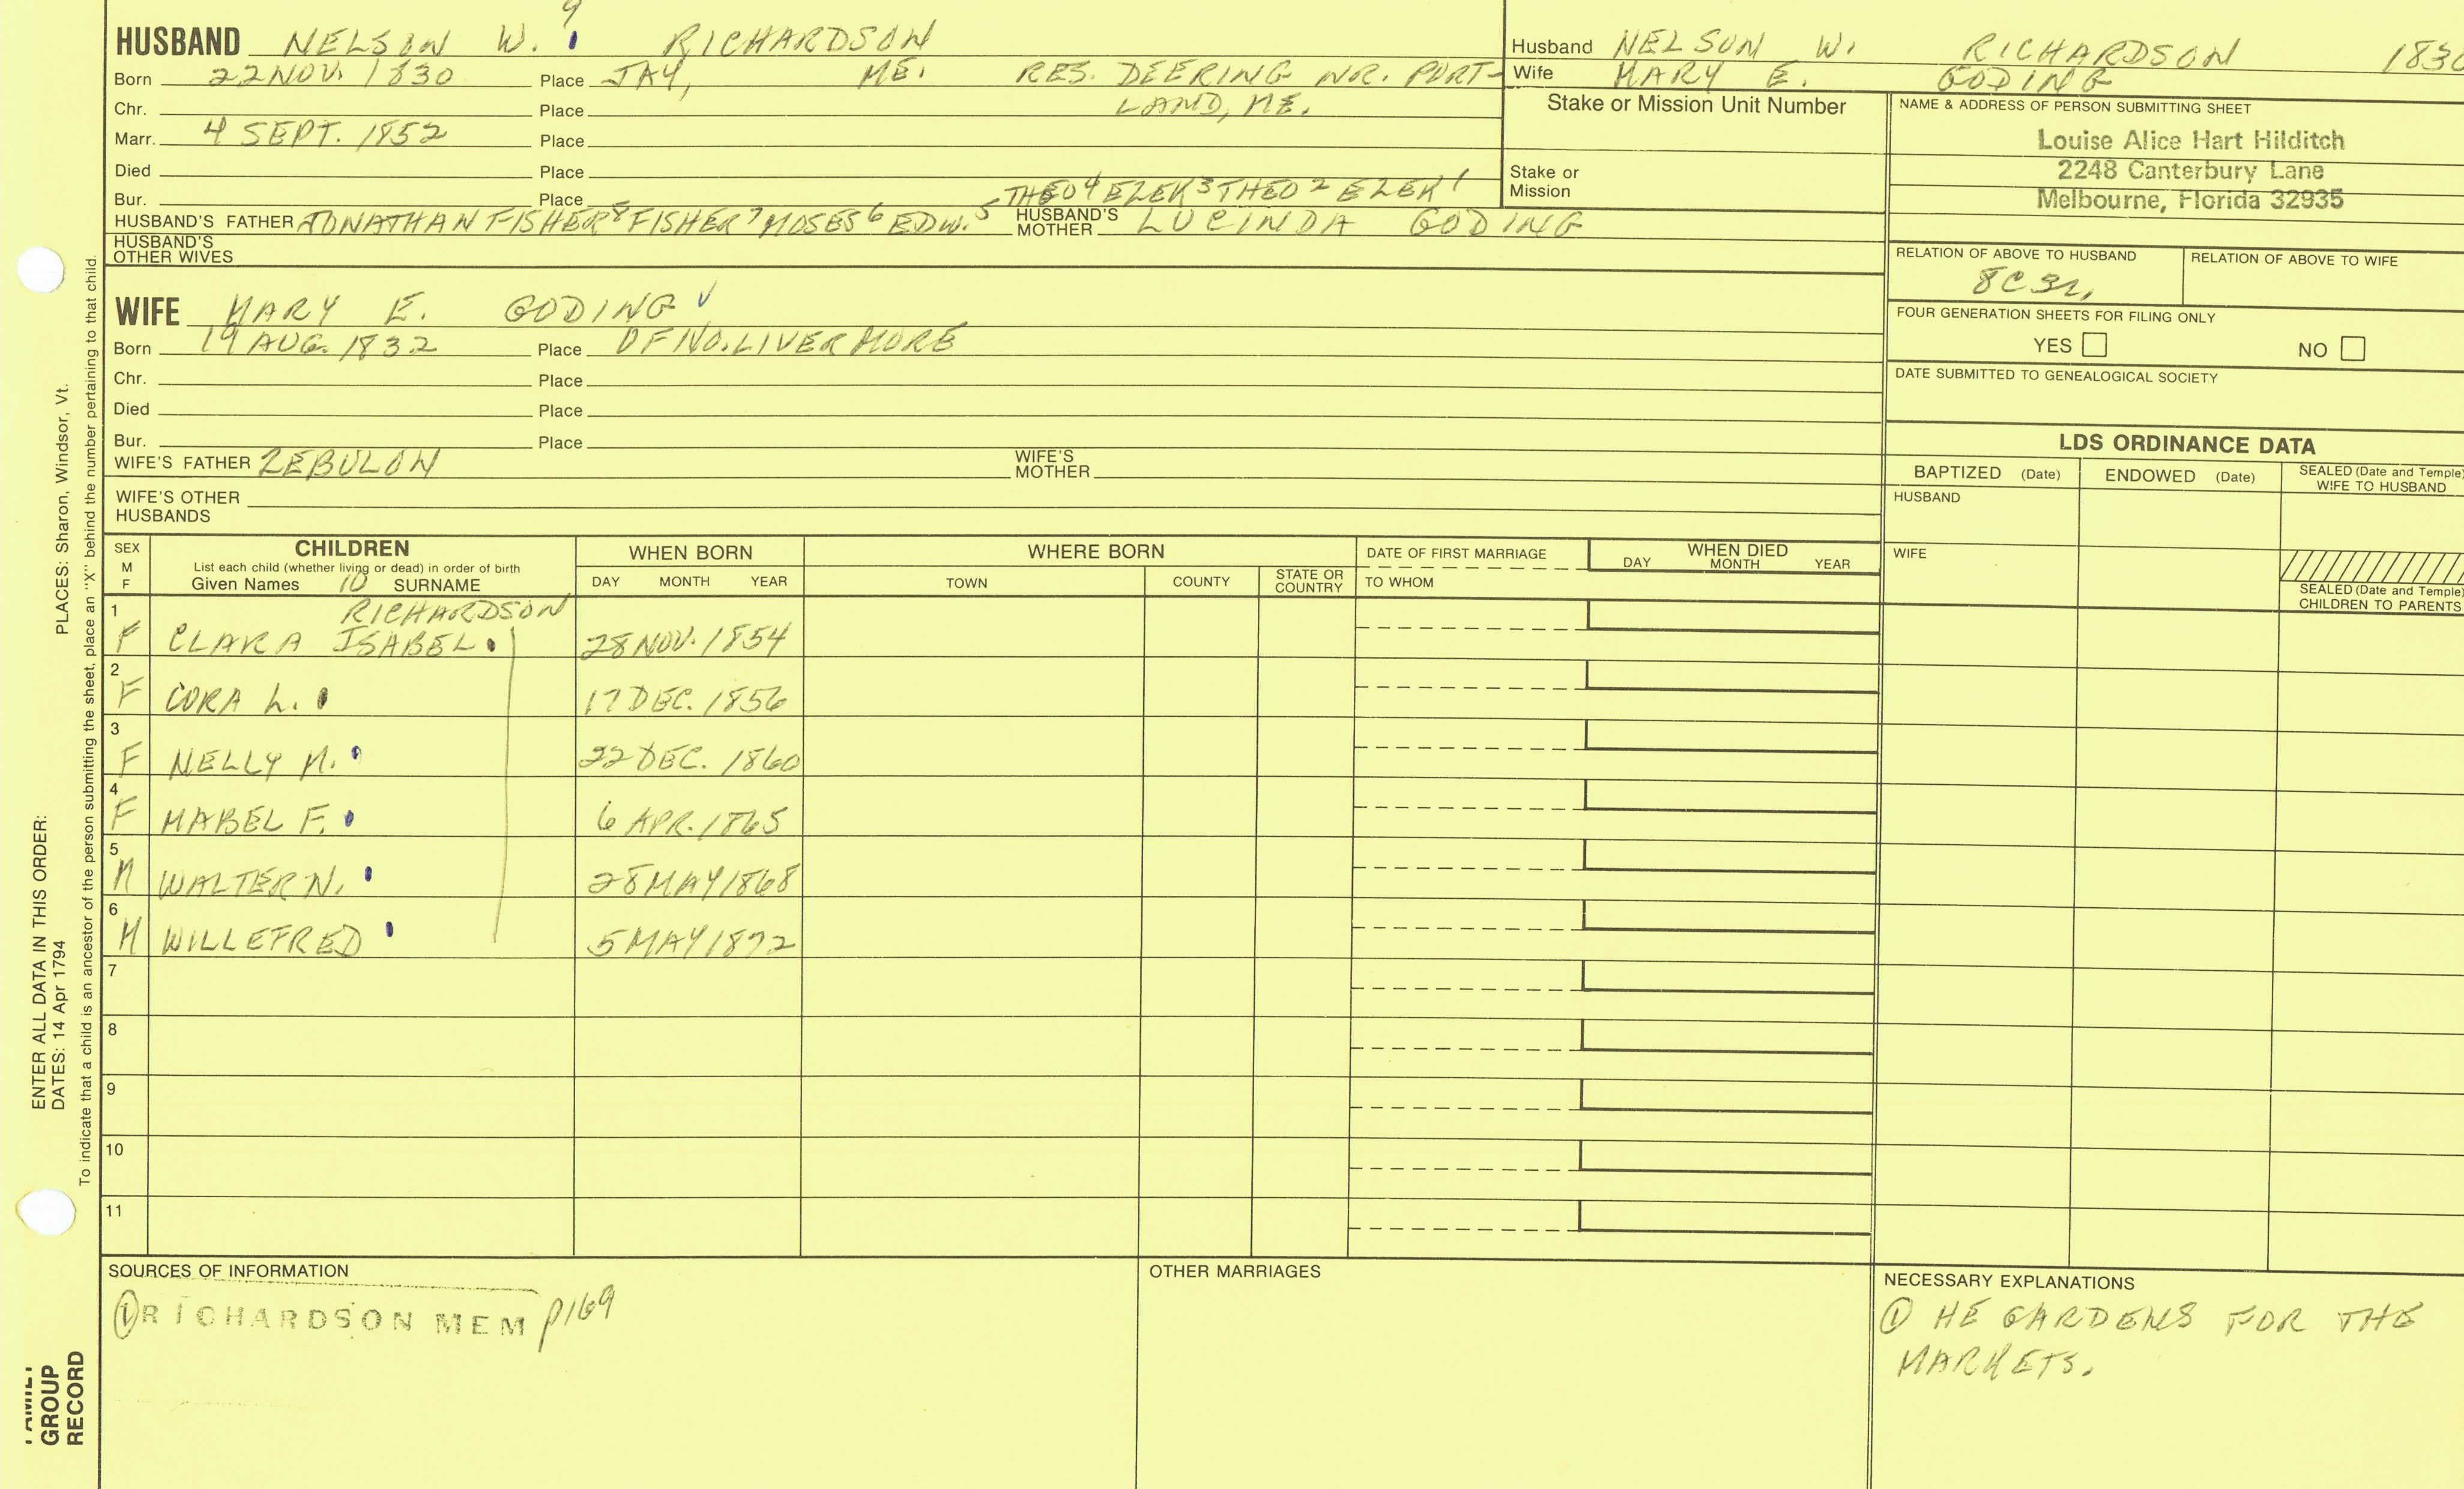 9
HUSBAND NELSON W. RICHARDSON
Born 22 NOV. 1830 Place JAY, ME. RES. DEERING NR. PORT-
Chr. Place LAND, ME.
Marr. 4 SEPT. 1852 Place
Died Place
Bur. Place THEO 4 EZEK 3 THEO 2 EZEK 1
HUSBAND'S FATHER JONATHAN FISHER 8 FISHER 7 MOSES 6 EDW. 5 HUSBAND'S MOTHER LUCINDA GODING
HUSBAND'S
OTHER WIVES
WIFE MARY E. GODING
Born 19 AUG. 1832 Place OF NO. LIVERMORE
Chr. Place
Died Place
Bur. Place
WIFE'S FATHER ZEBULON WIFE'S MOTHER
WIFE'S OTHER
HUSBANDS
Husband NELSON W. RICHARDSON 1830
Wife MARY E. GODING
Stake or Mission Unit Number
Stake or
Mission
NAME & ADDRESS OF PERSON SUBMITTING SHEET
Louise Alice Hart Hilditch
2248 Canterbury Lane
Melbourne, Florida 32935
RELATION OF ABOVE TO HUSBAND RELATION OF ABOVE TO WIFE
8C3r,
FOUR GENERATION SHEETS FOR FILING ONLY
YES NO
DATE SUBMITTED TO GENEALOGICAL SOCIETY
LDS ORDINANCE DATA
BAPTIZED (Date) ENDOWED (Date) SEALED (Date and Temple)
WIFE TO HUSBAND
HUSBAND
WIFE
SEALED (Date and Temple)
CHILDREN TO PARENTS
SEX
M
F
CHILDREN
List each child (whether living or dead) in order of birth
Given Names 10 SURNAME
WHEN BORN
DAY MONTH YEAR
WHERE BORN
TOWN COUNTY STATE OR
COUNTRY
DATE OF FIRST MARRIAGE
TO WHOM
WHEN DIED
DAY MONTH YEAR
1 RICHARDSON
F CLARA ISABEL 28 NOV. 1854
2
F CORA L. 17 DEC. 1856
3
F NELLY M. 22 DEC. 1860
4
F MABEL F. 6 APR. 1865
5
M WALTER N. 28 MAY 1868
6
M WILLEFRED 5 MAY 1872
7
8
9
10
11
SOURCES OF INFORMATION
① RICHARDSON MEM p169
OTHER MARRIAGES
NECESSARY EXPLANATIONS
① HE GARDENS FOR THE
MARKETS.
ENTER ALL DATA IN THIS ORDER:
DATES: 14 Apr 1794
PLACES: Sharon, Windsor, Vt.
To indicate that a child is an ancestor of the person submitting the sheet, place an "X" behind the number pertaining to that child.
FAMILY
GROUP
RECORD